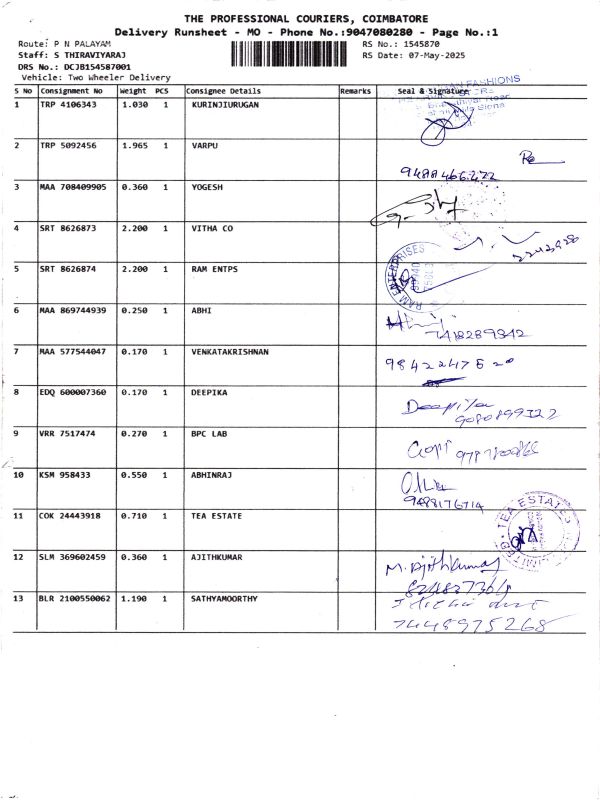 THE PROFESSIONAL COURIERS, COIMBATORE
Delivery Runsheet - MO - Phone No.:9047080280 - Page No.:1
Route: P N PALAYAM
RS No.: 1545870
Staff: S THIRAVIYARAJ
RS Date: 07-May-2025
DRS No.: DCJB154587001
Vehicle: Two Wheeler Delivery
FASHIONS
S No Consignment No Weight PCS Consignee Details Remarks Seal & Signature
1 TRP 4106343 1.030 1 KURINJIURUGAN
2 TRP 5092456 1.965 1 VARPU
9488466272
3 MAA 708409905 0.360 1 YOGESH
4 SRT 8626873 2.200 1 VITHA CO
2243928
5 SRT 8626874 2.200 1 RAM ENTPS
RAM ENTERPRISES
6 MAA 869744939 0.250 1 ABHI
7418289342
7 MAA 577544047 0.170 1 VENKATAKRISHNAN
8 EDQ 600007360 0.170 1 DEEPIKA
Deepika
9080899322
9 VRR 7517474 0.270 1 BPC LAB
Gopi
10 KSM 958433 0.550 1 ABHINRAJ
9488176714
11 COK 24443918 0.710 1 TEA ESTATE
TEA ESTATES
12 SLM 369602459 0.360 1 AJITHKUMAR
M. Ajithkumar
13 BLR 2100550062 1.190 1 SATHYAMOORTHY
7448975268